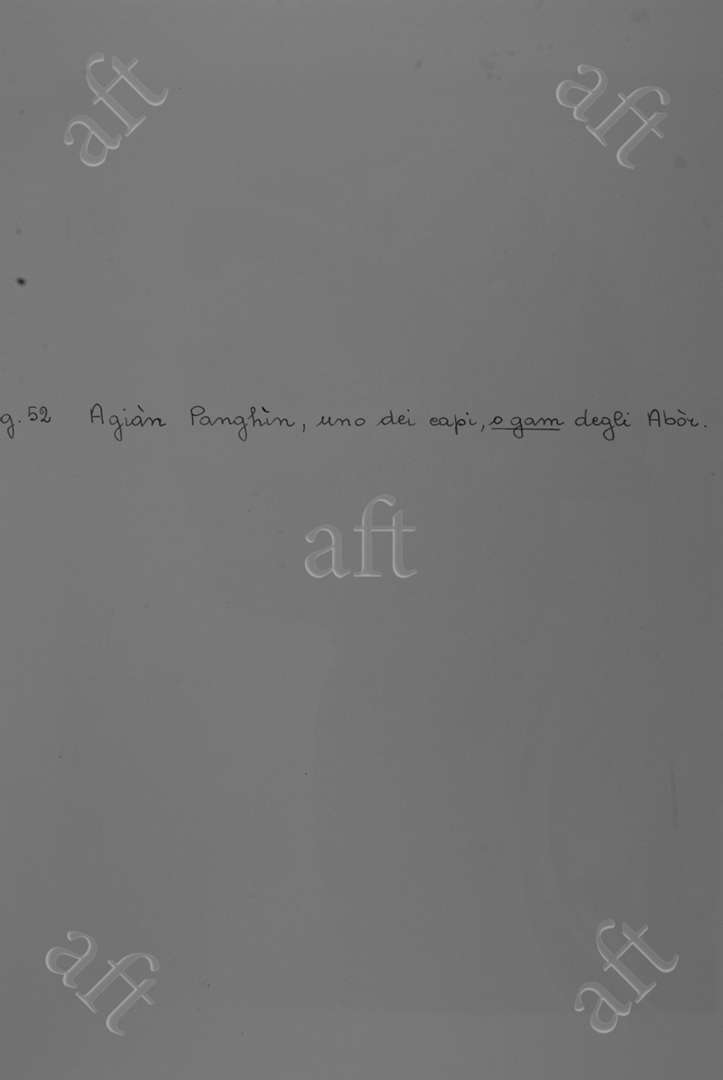 aft
aft
g. 52 Agiàn Panghìn, uno dei capi, o gam degli Abòr.
aft
aft
aft